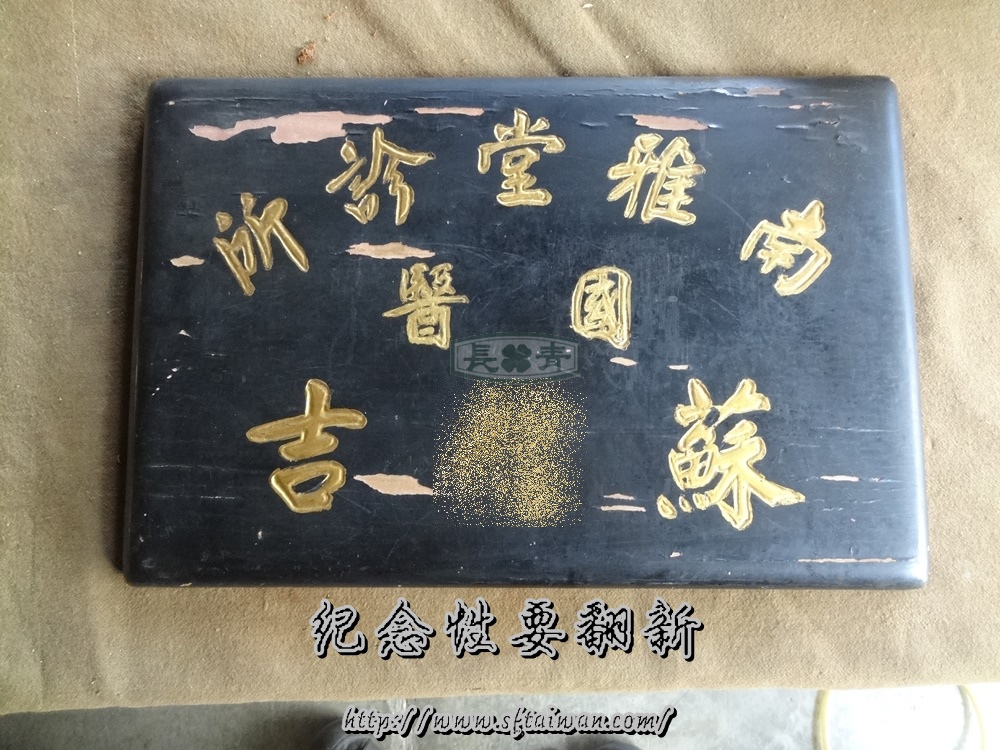 南雅堂診所
國醫
蘇 吉
長青
纪念性要翻新
http://www.sftaiwan.com/